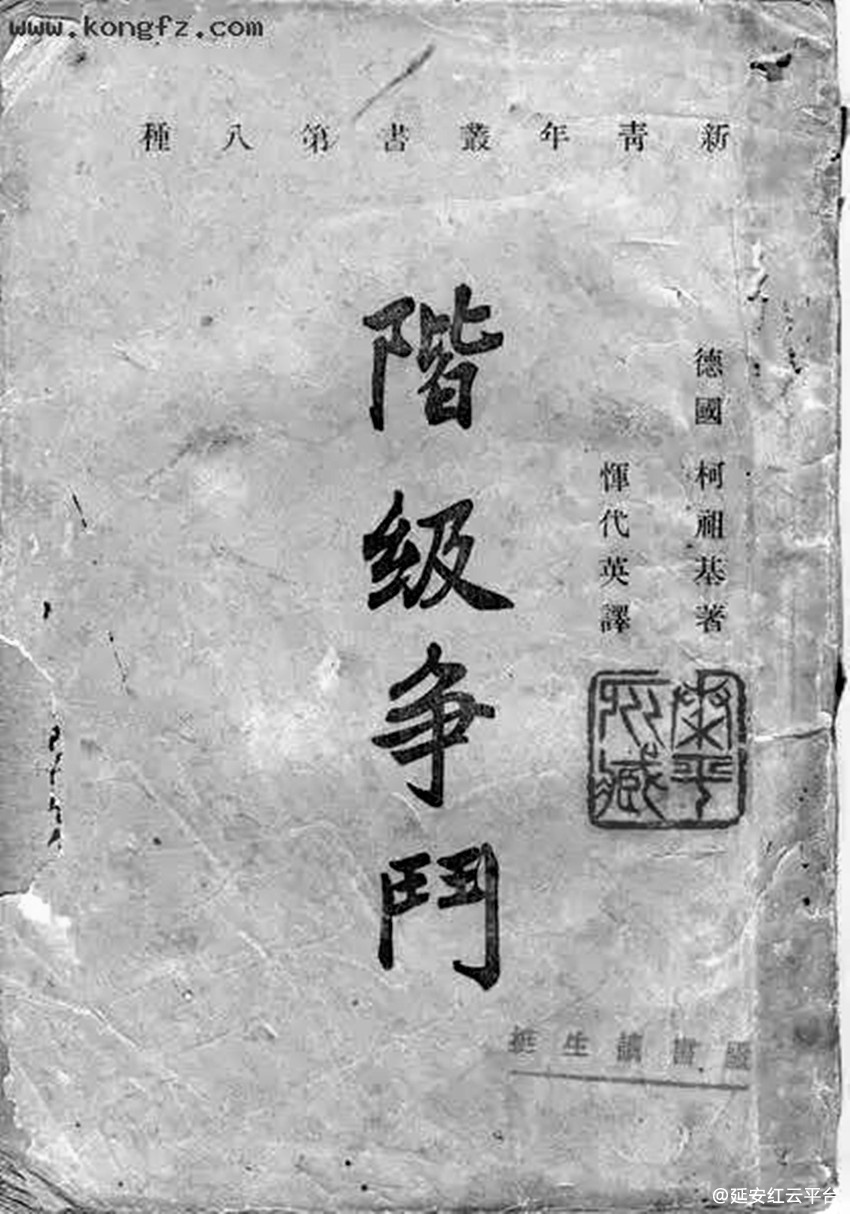 www.kongfz.com
新青年叢書第八種
德國 柯祖基著
惲代英譯
階級争鬥
@延安红云平台